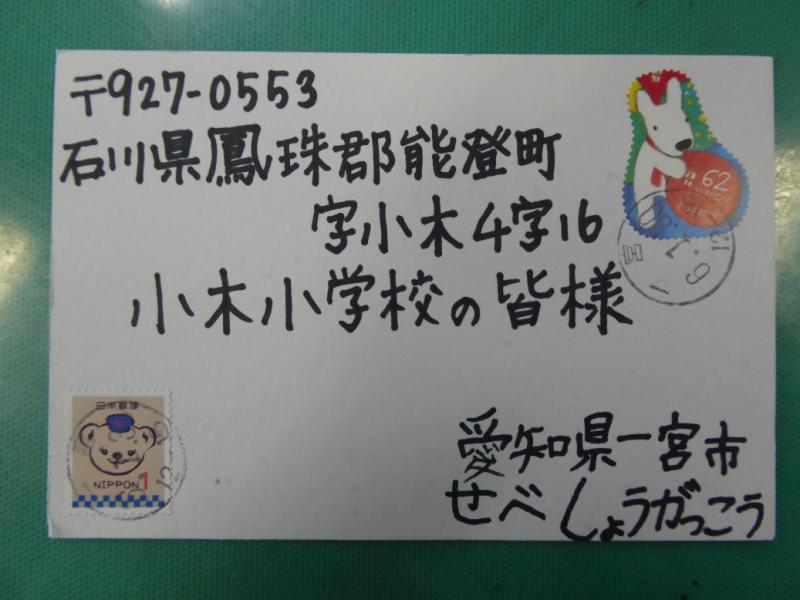 〒927-0553
石川県鳳珠郡能登町
字小木4字16
小木小学校の皆様
62
日本郵便
NIPPON 1
愛知県一宮市
せべしょうがっこう